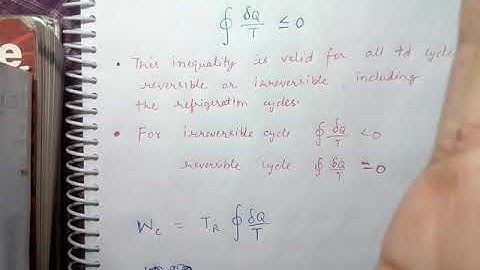 ∮ δQ/T ≤ 0
• This inequality is valid for all td cycle
reversible or irreversible including
the refrigeration cycles.
• For irreversible cycle ∮ δQ/T < 0
reversible cycle ∮ δQ/T = 0
W_c = T_R ∮ δQ/T